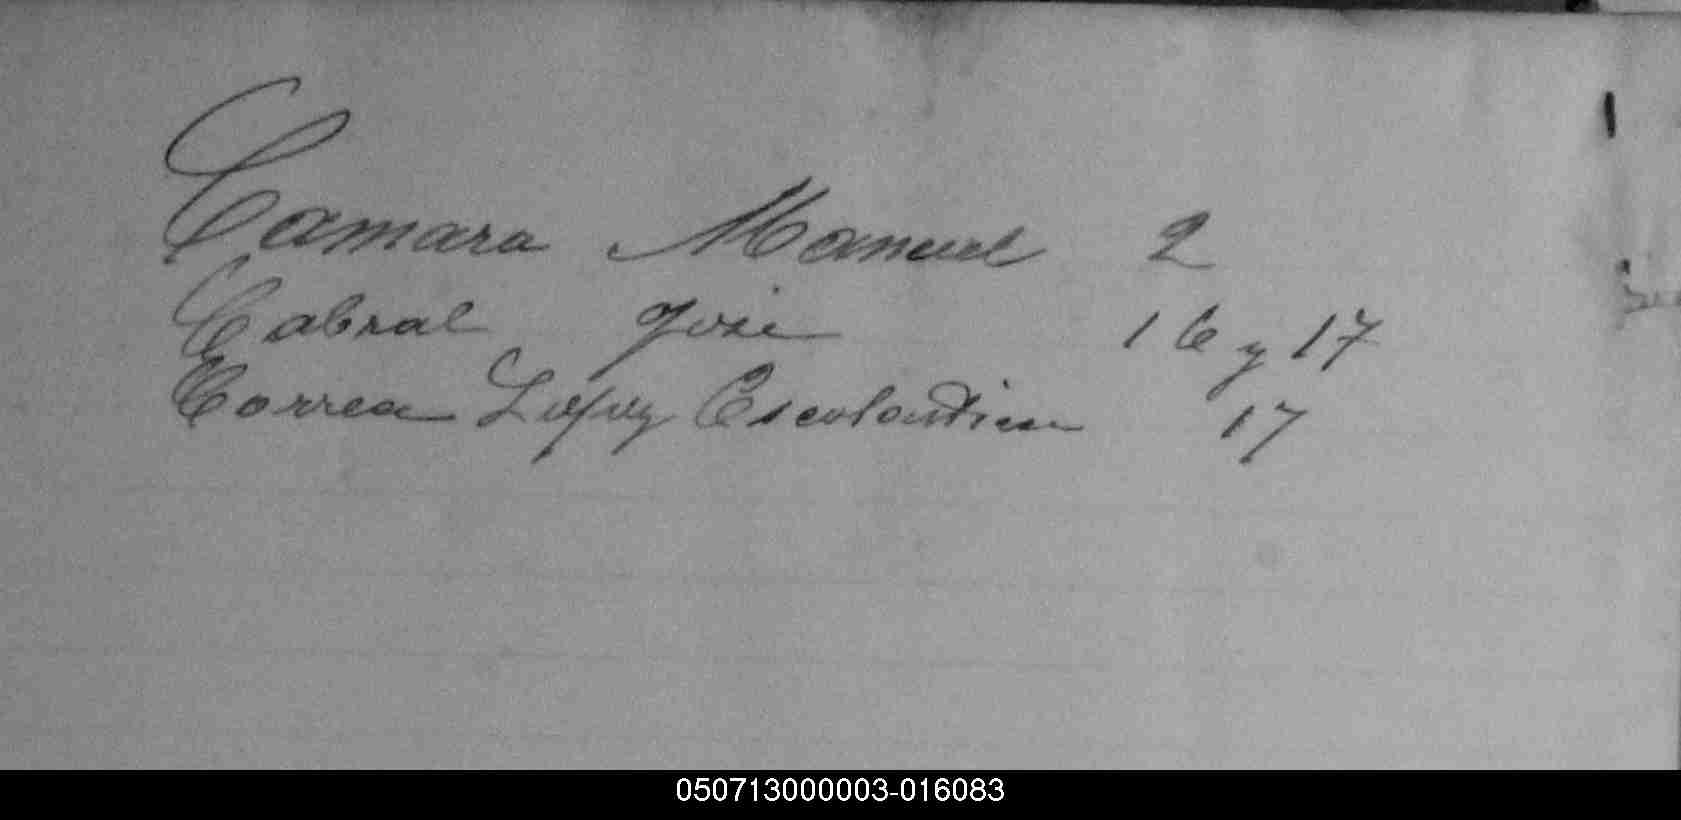 Camara Manuel 2
Cabral José 16 y 17
Correa Lopez Escolastica 17
050713000003-016083